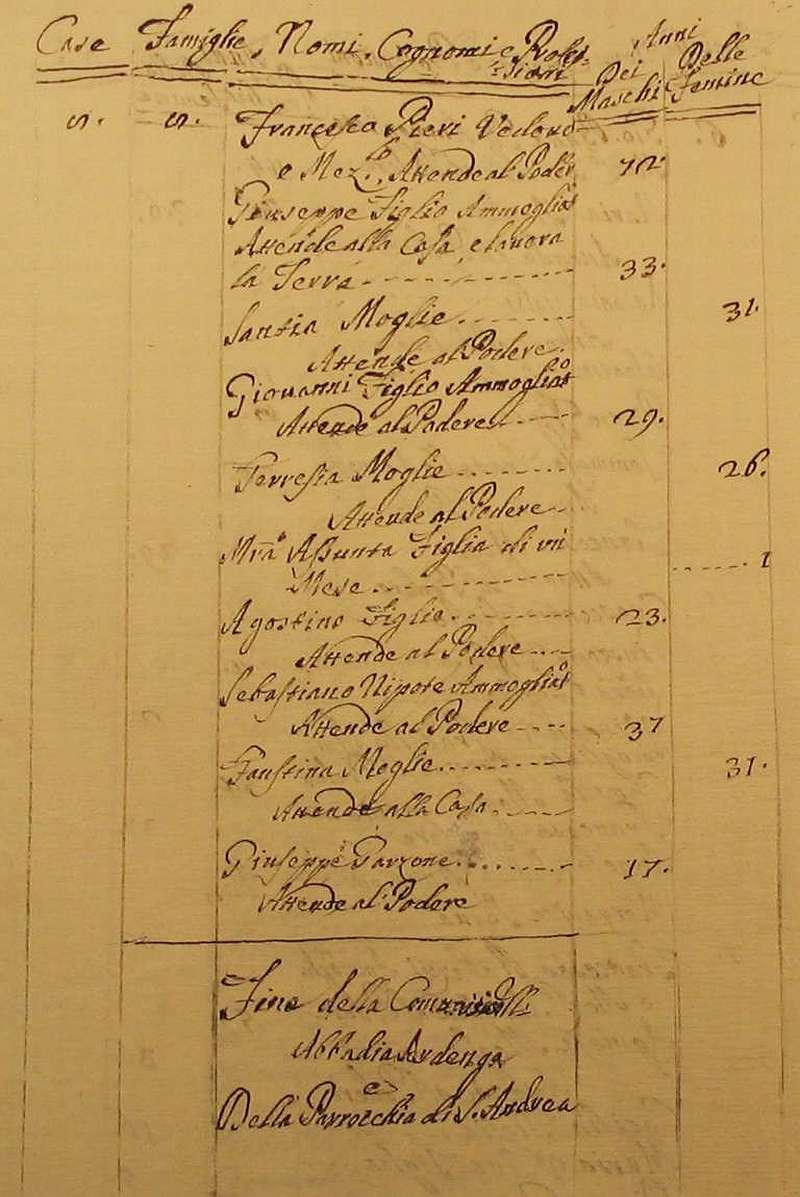 Case Famiglie, Nomi, Cognomi e Anni
Dei Maschi Delle Femine
5. 5. Francesco Pieri Vedovo
e Mez.º Attende al Poder 72.
Giuseppe Figlio Ammogliat
Attende alla Casa e lavora
la Terra 33.
Santia Moglie 31.
Attende al Podere
Giovanni Figlio Ammogliatº
Attende al Podere 29.
Terresia Moglie 26.
Attende al Podere
Mrãª Assunta Figlia di un
Mese 1
Agostino Figlio 23.
Attende al Podere
Sebastiano Nipote Ammogliatº
Attende al Podere 37
Faustina Moglie 31.
Attende alla Casa
Giuseppe Garzone 17.
Attende al Podere
Fine della
Abbadia Ardenga
e
Della Parrocchia di S. Andrea